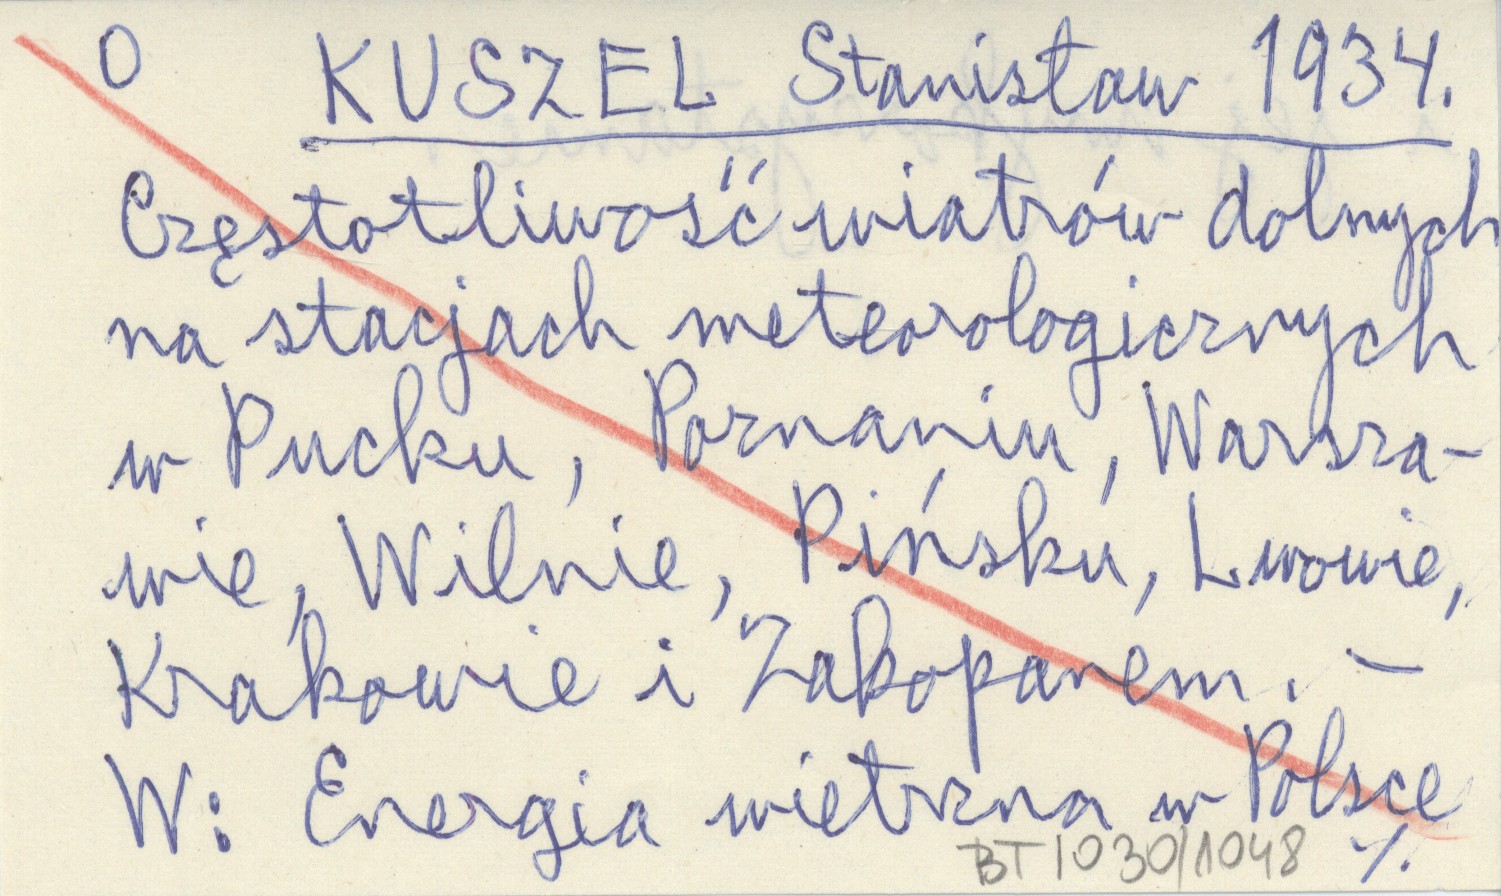 O KUSZEL Stanisław 1934.
Częstotliwość wiatrów dolnych
na stacjach meteorologicznych
w Pucku, Poznaniu, Warsza-
wie, Wilnie, Pińsku, Lwowie,
Krakowie i Zakopanem. –
W: Energia wietrzna w Polsce
BT1030/1048 ./.